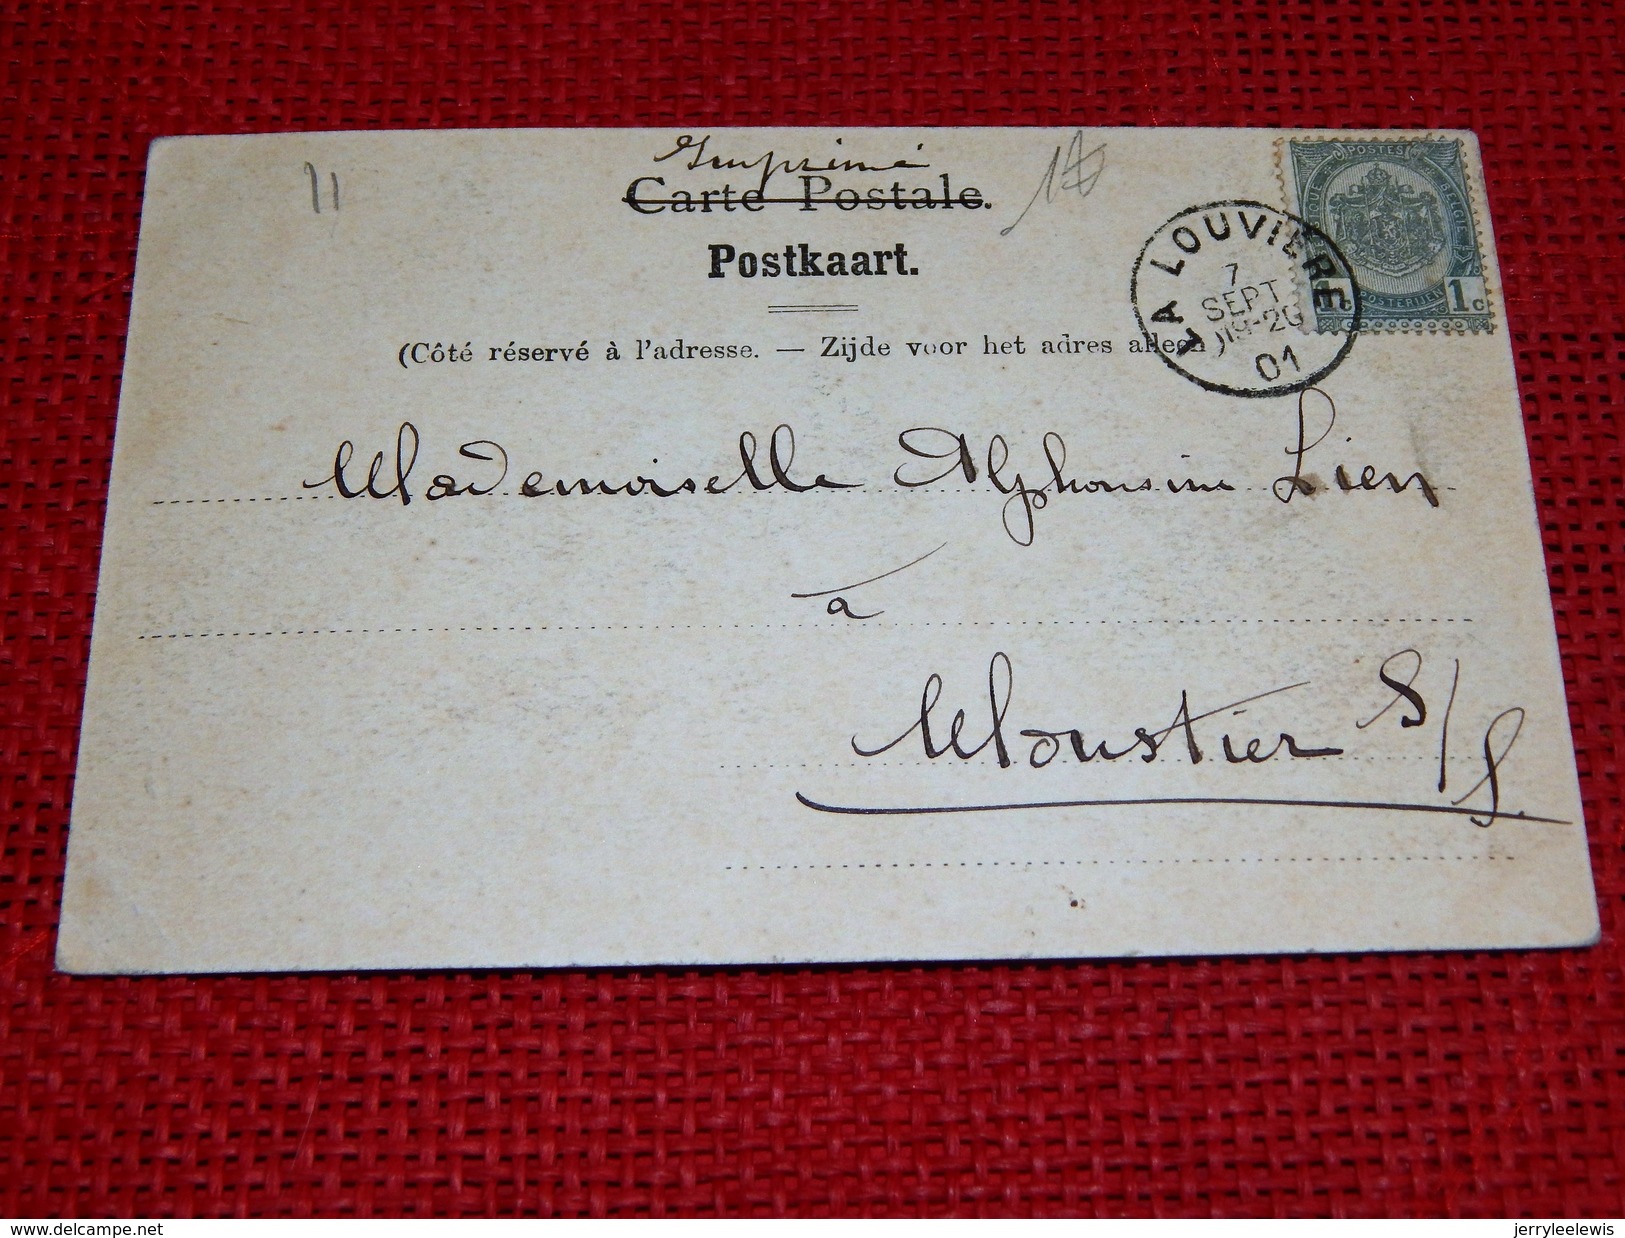 Imprimé
Carte Postale.
Postkaart.
(Côté réservé à l'adresse. — Zijde voor het adres alleen
POSTES
POSTERIJEN
1c
LA LOUVIÈRE
7
SEPT
01
11
Mademoiselle Alphonsine Lien
à
Moustier S/S.
www.delcampe.net
jerryleelewis